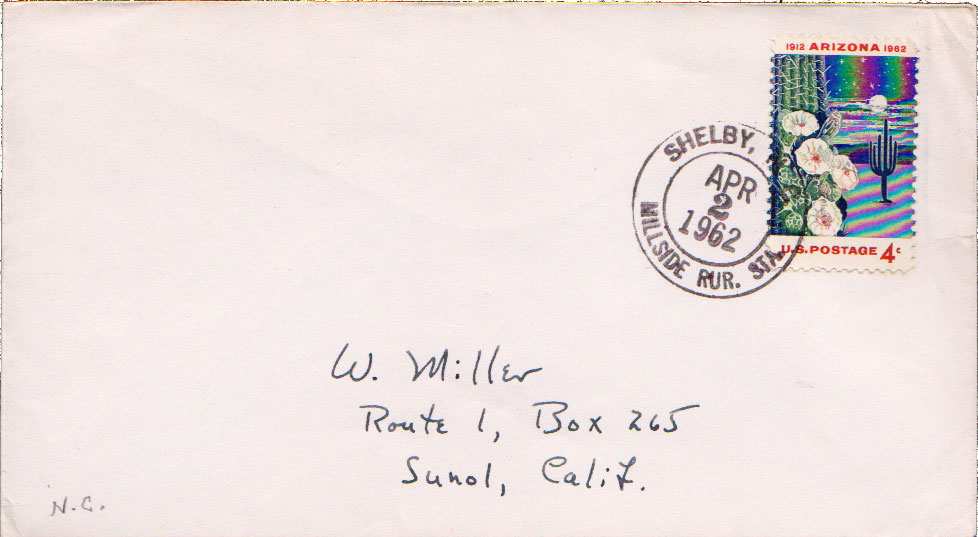 1912 ARIZONA 1962
SHELBY,
APR
2
1962
MILLSIDE RUR. STA.
U.S. POSTAGE 4c
W. Miller
Route 1, Box 265
Sunol, Calif.
N.C.